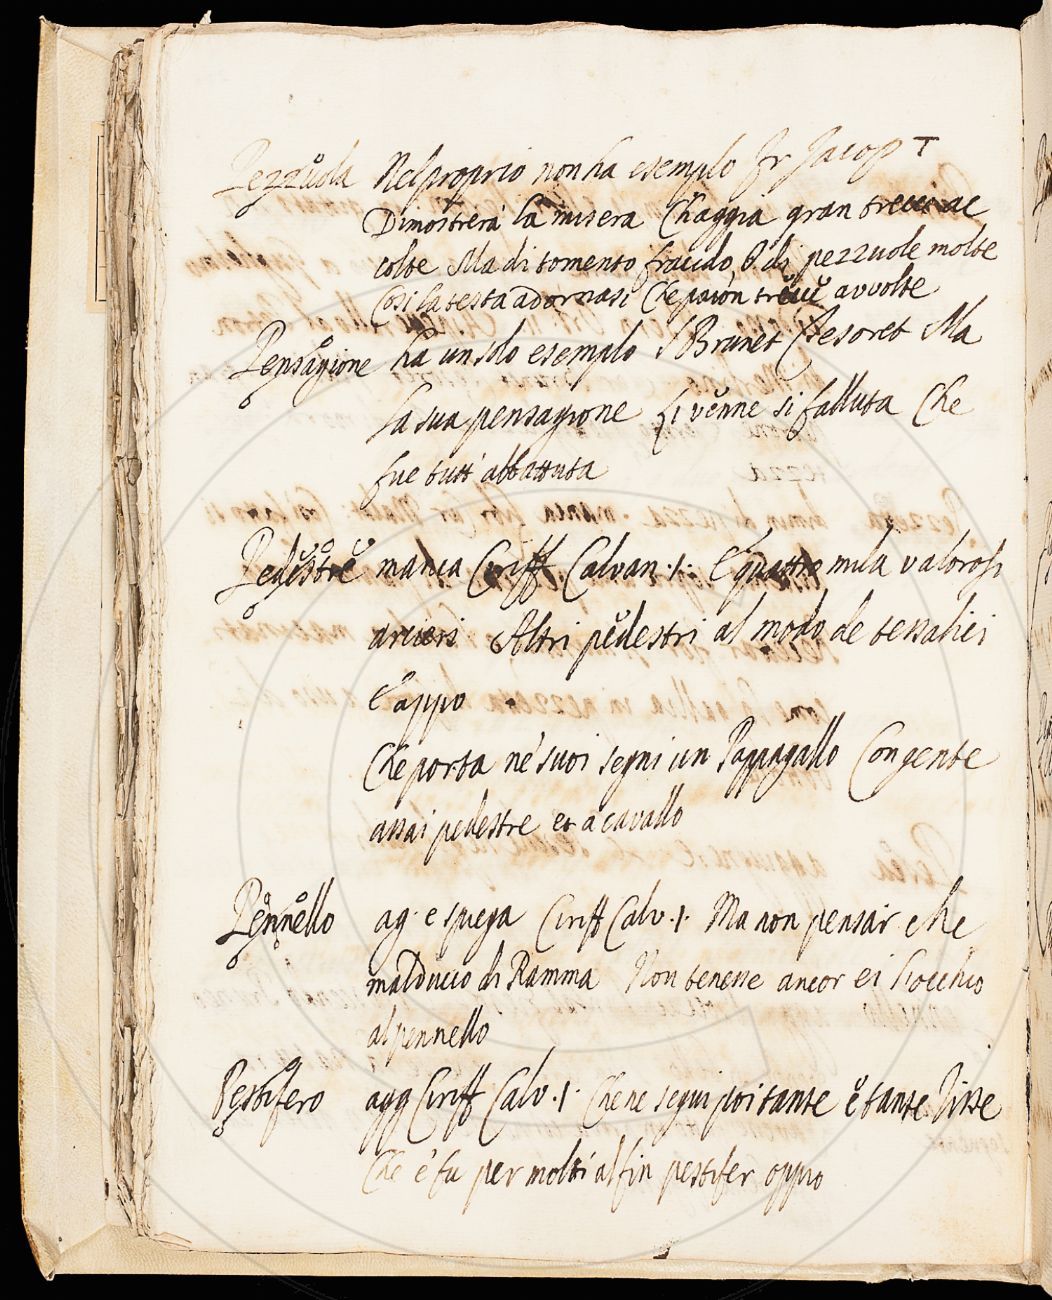 Pezzuola Nel proprio non ha esempio Fr Jacop T
Dimosterrà la misera Ch'aggia gran treccie ac
colte Ma di tomento fracido, O di pezzuole molte
Così la testa adornasi Che paion treccie avvolte
Pensagione ha un solo esempio S Brunet Tesoret Ma
la sua pensagione li venne si falluta Che
fue tutt' abbattuta
Pedestre manca Ciriff Calvan . 1 . E quattro mila valorosi
arcieri Altri pedestri al modo de tessalici
E appo
Che porta ne' suoi segni un Pappagallo Con gente
assai pedestre et à cavallo
Pennello ag. e spiega Ciriff Calv . 1 . Ma non pensar che
malduccio di Ramma Non tenesse ancor ei l'occhio
al pennello
Pestifero agg Ciriff Calv . 1 . Che ne seguì poi tante e tante risse
Che e' fu per molti al fin pestifer oppio